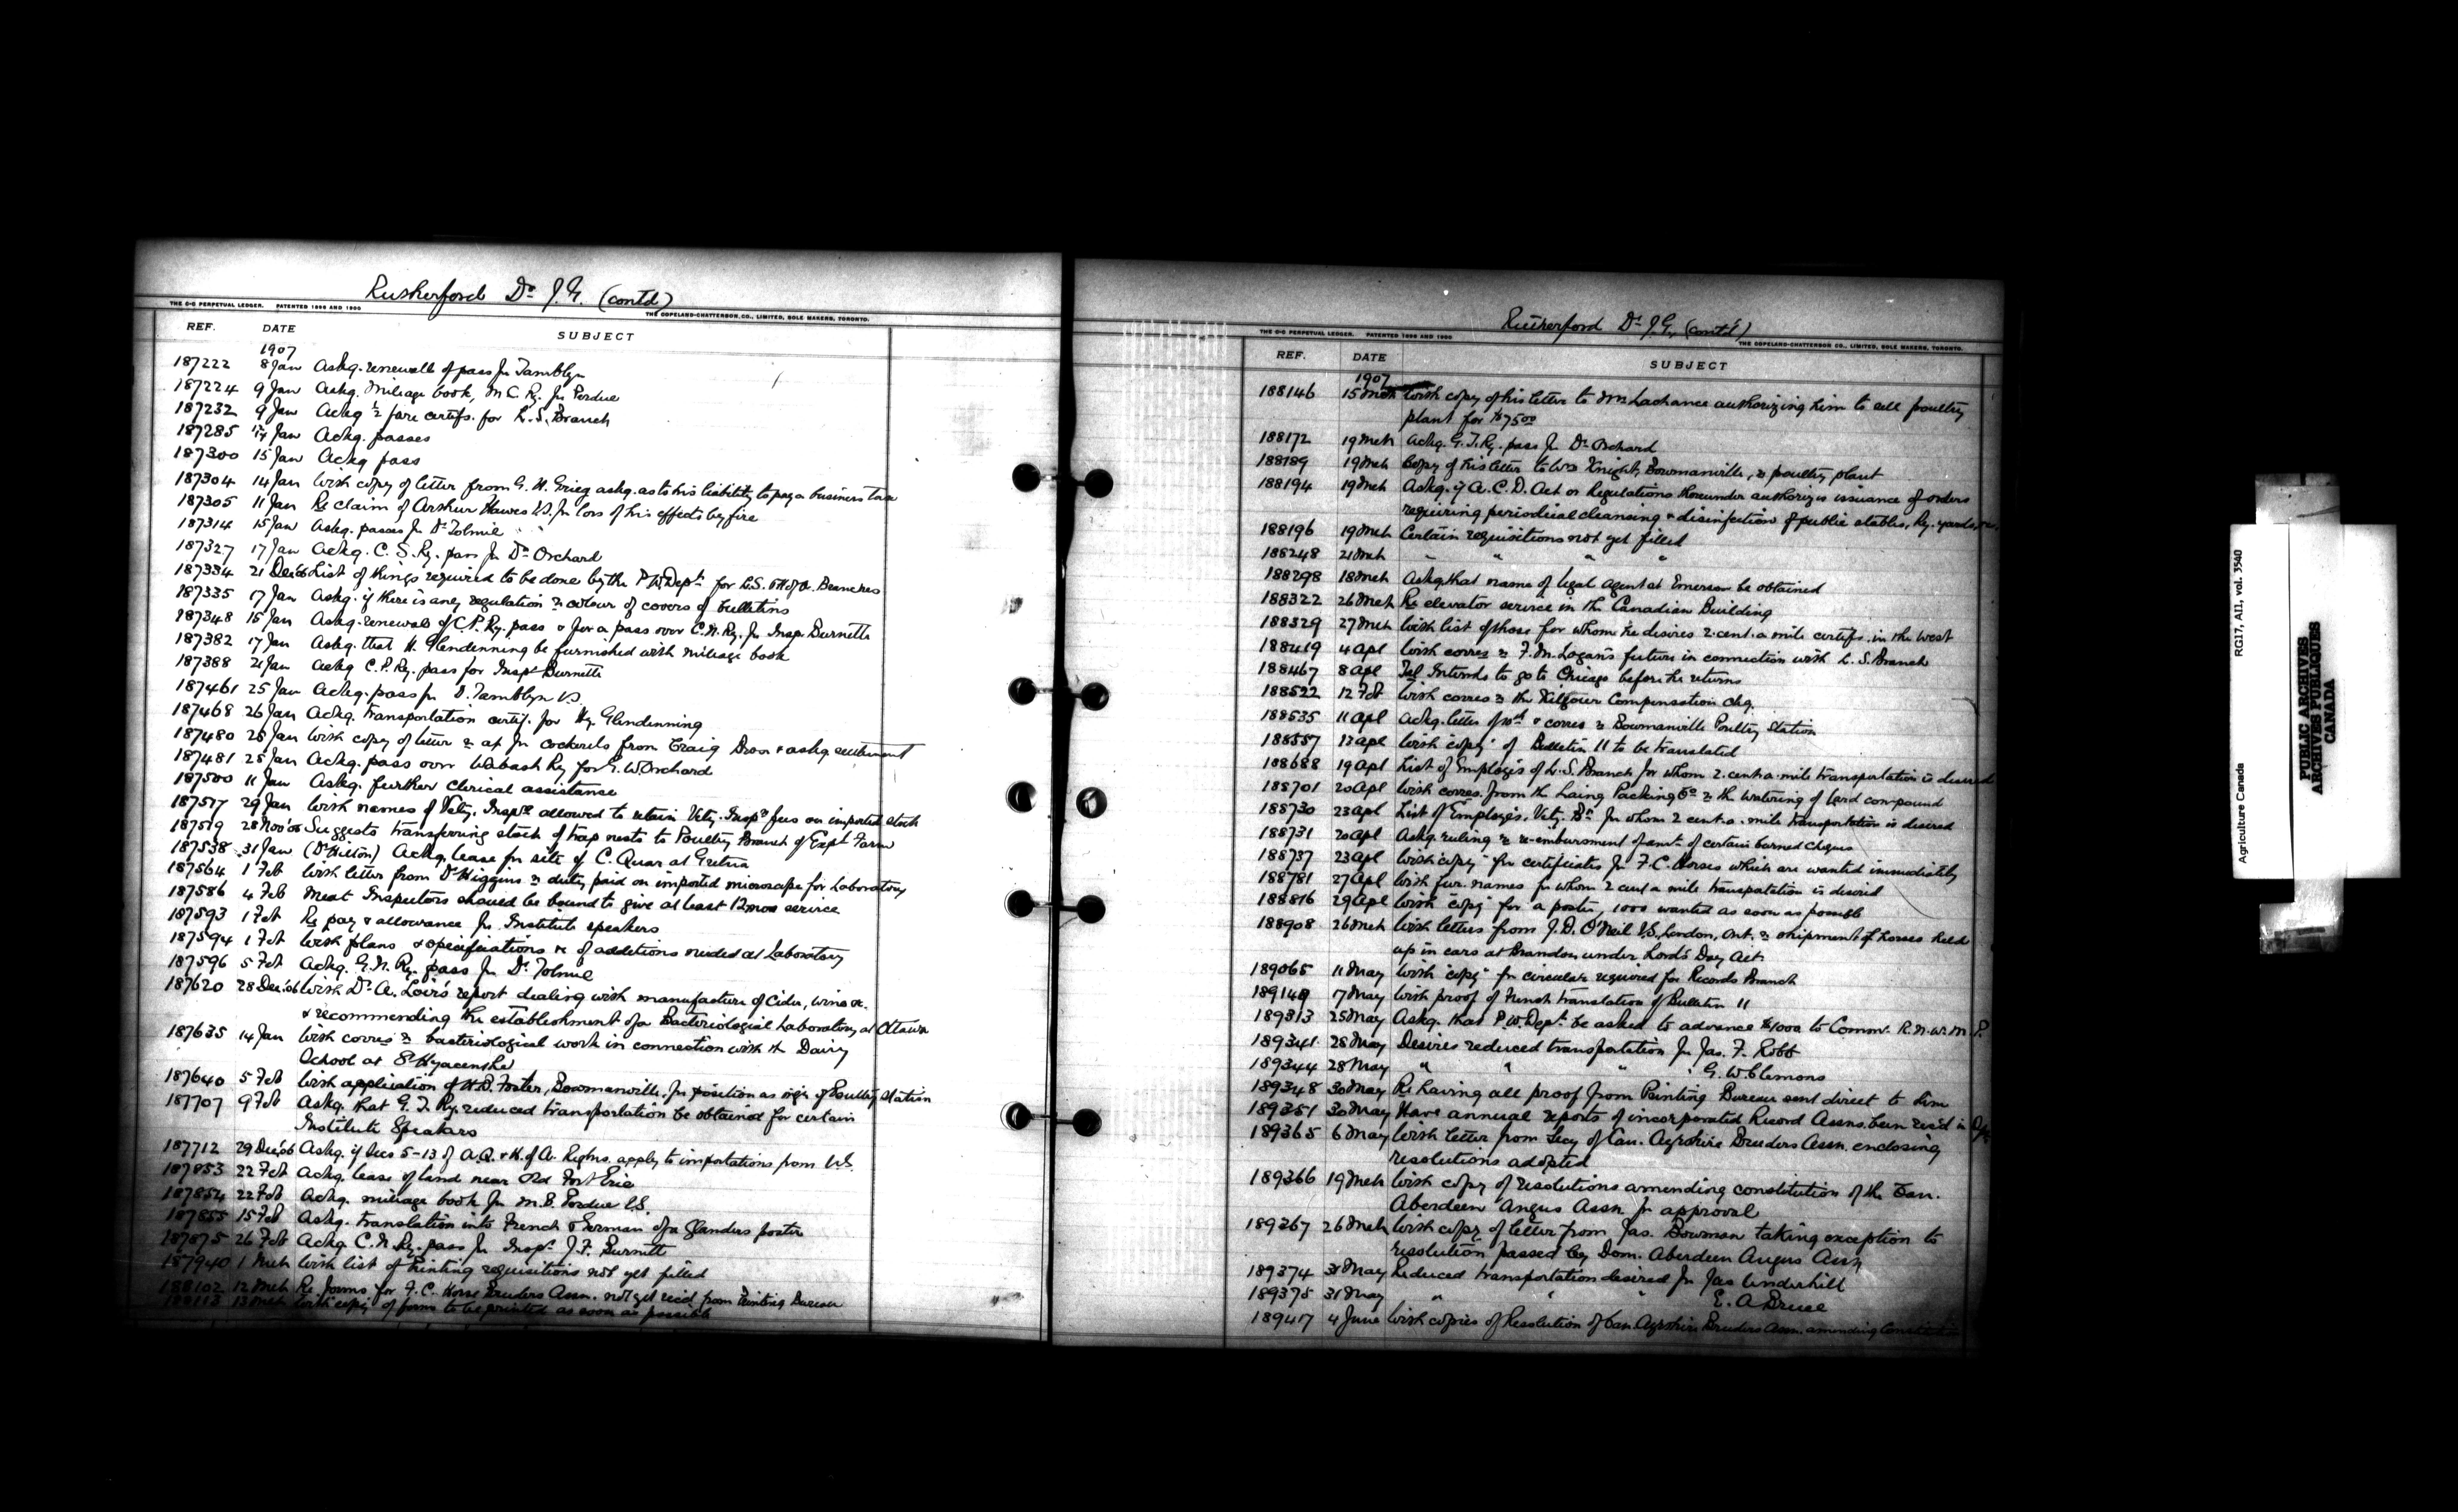 Rutherford Dr J.G. (contd)
THE C-C PERPETUAL LEDGER. PATENTED 1896 AND 1900
THE COPELAND-CHATTERSON CO., LIMITED, SOLE MAKERS, TORONTO.
REF. DATE SUBJECT
1907
187222 8 Jan Askg. renewall of pass for Tamblyn
187224 9 Jan Askg. Mileage book, M C Ry. for Perdue
187232 9 Jan Ackg ½ fare certifs. for L.S. Branch
187285 Jan Ackg. passes
187300 15 Jan Ackg pass
187304 14 Jan With copy of letter from G. H. Grieg askg. as to his liability to pay a business tax
187305 11 Jan Re claim of Arthur Hawes V.S. for loss of his effects by fire
187314 15 Jan Askg. passes for Dr Tolmie
187327 17 Jan Ackg. C. S. Ry. pass for Dr Orchard
187334 21 Dec '06 List of things required to be done by the P W Dept. for L.S. & H of A. Branches
187335 17 Jan Askg. if there is any regulation re colour of covers of bulletins
187348 15 Jan Askg. renewals of C.P. Ry. pass & for a pass over C.N. Ry. for Insp. Burnett
187382 17 Jan Askg. that H. Glendenning be furnished with mileage book
187388 21 Jan Ackg C.P. Ry. pass for Inspr Burnett
187461 25 Jan Ackg. pass for D. Tamblyn V.S.
187468 26 Jan Ackg. transportation certif. for Hy. Glendinning
187480 25 Jan With copy of letter re a/c for cockerels from Craig Bros & askg. settlement
187481 25 Jan Ackg. pass over Wabash Ry for G. W. Orchard
187500 11 Jan Askg. further clerical assistance
187517 29 Jan With names of Vety. Insprs allowed to retain Vety. Inspn fees on imported stock
187519 28 Nov '06 Suggests transferring stock of trap nests to Poultry Branch of Expt Farm
187538 31 Jan (Dr Hilton) Ackg. lease for site of C. Quar at Gretna
187564 1 Feb With letter from Dr Higgins re duty paid on imported microscope for Laboratory
187586 4 Feb Meat Inspectors should be bound to give at least 12 mos service
187593 1 Feb Re pay & allowance for Institute speakers
187594 1 Feb With plans & specifications &c of additions needed at Laboratory
187596 5 Feb Ackg. G.N. Ry. pass for Dr Tolmie
187620 28 Dec. '06 With Dr A. Loir's report dealing with manufacture of Cider, wine &c.
& recommending the establishment of a Bacteriological Laboratory at Ottawa
187635 14 Jan With corres re bacteriological work in connection with the Dairy
School at St Hyacenthe
187640 5 Feb With application of H.B. Foster, Bowmanville, for position as mgr of Poultry Station
187707 9 Feb Askg. that G. T. Ry. reduced transportation be obtained for certain
Institute Speakers
187712 29 Dec. '06 Askg. if Secs 5-13 of A.Q. & H. of A. Regtns. apply to importations from U.S.
187853 22 Feb Ackg. lease of land near Old Fort Erie
187854 22 Feb Ackg. mileage book for M.B. Perdue V.S.
187855 15 Feb Askg. translation into French & German of a Glanders poster
187875 26 Feb Ackg C.N. Ry. pass for Inspr. J.F. Burnett
187940 1 Mch With list of Printing requisitions not yet filled
188102 12 Mch Re forms for F.C. Horse Breeders Assn. not yet recd from Printing Bureau
188113 13 Mch With copy of forms to be printed as soon as possible
Rutherford Dr J.G. (contd)
THE C-C PERPETUAL LEDGER. PATENTED 1896 AND 1900
THE COPELAND-CHATTERSON CO., LIMITED, SOLE MAKERS, TORONTO.
REF. DATE SUBJECT
1907
188146 15 Mch With copy of his letter to Mr Lachance authorizing him to sell poultry
plant for $75.00
188172 19 Mch Ackg. G.T. Ry. pass for Dr Orchard
188189 19 Mch Copy of his letter to Wm Knight, Bowmanville, re poultry plant
188194 19 Mch Askg. if A.C.D. Act or Regulations thereunder authorizes issuance of orders
requiring periodical cleansing & disinfection of public stables, Ry. yards, &c.
188196 19 Mch Certain requisitions not yet filled
188248 21 Mch " " " "
188298 18 Mch Askg. that name of legal agent at Emerson be obtained
188322 26 Mch Re elevator service in the Canadian Building
188329 27 Mch With list of those for whom he desires 2-cent-a mile certifs. in the West
188419 4 Apl With corres re F.M. Logan's future in connection with L.S. Branch
188467 8 Apl Tel Intends to go to Chicago before he returns
188522 12 Feb With corres re the Kilgour Compensation chq.
188535 11 Apl Ackg. letter of 10th & corres re Bowmanville Poultry Station
188557 13 Apl With "copy" of Bulletin 11 to be translated
188688 19 Apl List of Employés of L.S. Branch for whom 2-cent-a-mile transportation is desired
188701 20 Apl With corres. from the Laing Packing Co re the watering of lard compound
188730 23 Apl List of Employés, Vety. Br. for whom 2 cent-a-mile transportation is desired
188731 20 Apl Askg. ruling re re-embursment of amt. of certain burned cheques
188737 23 Apl With "copy" for certificates for F.C. Horses which are wanted immediately
188781 27 Apl With fur. names for whom 2 cent a mile transportation is desired
188816 29 Apl With "copy" for a poster, 1000 wanted as soon as possible
188908 26 Mch With letters from J.D. O'Neil V.S. London, Ont. re shipment of horses held
up in cars at Brandon under Lord's Day Act
189065 11 May With "copy" for circulars required for Records Branch
189149 17 May With proof of French translation of Bulletin 11
189313 25 May Askg. that P W Dept. be asked to advance $1000 to Commr. R.N.W.M.P.
189341 28 May Desires reduced transportation for Jas. F. Robb
189344 28 May " " " " G. W. Clemons
189348 30 May Re having all proof from Printing Bureau sent direct to him
189351 30 May Have annual reports of incorporated Record Assns. been rec'd in Dpt
189365 6 May With letter from Secy of Can. Ayrshire Breeders Assn. enclosing
resolutions adopted
189366 19 Mch With copy of resolutions amending constitution of the Can.
Aberdeen Angus Assn. for approval
189367 26 Mch With copy of letter from Jas. Bowman taking exception to
resolution passed by Dom. Aberdeen Angus Assn
189374 31 May Reduced transportation desired for Jas Underhill
189375 31 May " " " E. A Bruce
189417 4 June With copies of Resolution of Can. Ayrshire Breeders Assn. amending Constitution
Agriculture Canada RG17, AII, vol. 3540
PUBLIC ARCHIVES
ARCHIVES PUBLIQUES
CANADA